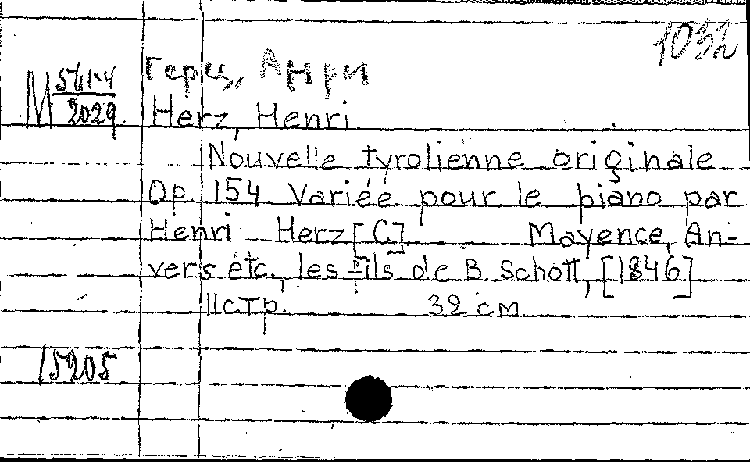 1032
Герц, Анри
М 561-4
2029
Herz, Henri
Nouvelle tyrolienne originale
Op. 154 Variée pour le piano par
Henri Herz [C.] Mayence, An-
vers etc., les fils de B. Schott, [1846]
11 стр. 32 см
15205